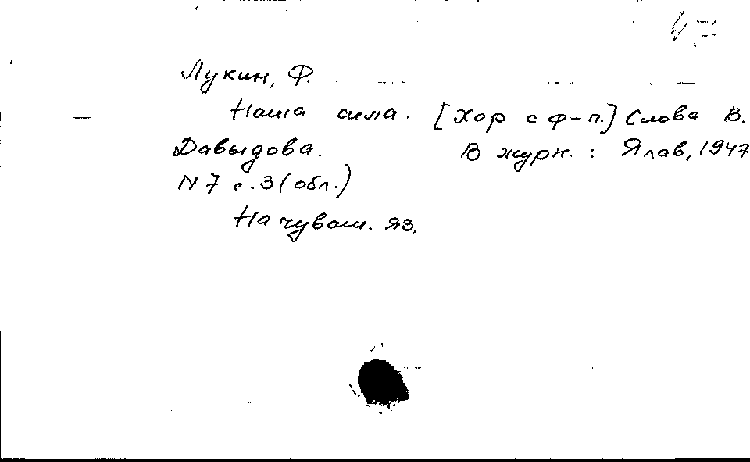 47
Лукин, Ф.
Наша сила. [Хор с ф-п.] Слова В.
Давыдова. В журн. : Ялав, 1947
N 7 с. 3 (обл.)
На чуваш. яз.